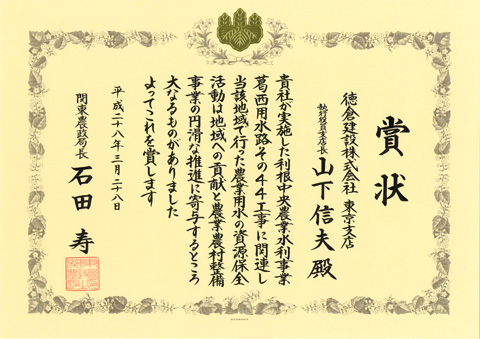 賞状
徳倉建設株式会社 東京支店
執行役員支店長 山下信夫 殿
貴社が実施した利根中央農業水利事業
葛西用水路その44工事に関連し
当該地域で行った農業用水の資源保全
活動は地域への貢献と農業農村整備
事業の円滑な推進に寄与するところ
大なるものがありました
よってこれを賞します
平成二十八年三月二十八日
関東農政局長 石田 寿